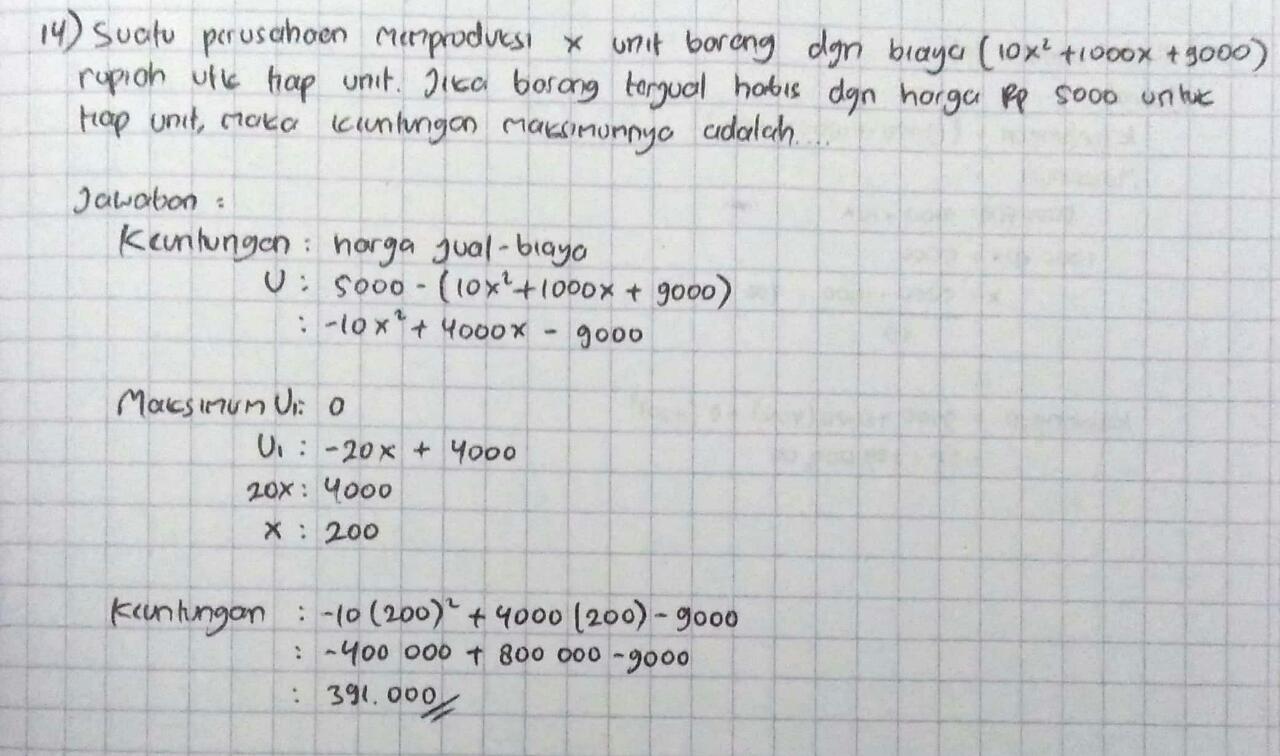 14) Suatu perusahaan memproduksi x unit barang dgn biaya (10x² + 1000x + 9000)
rupiah utk tiap unit. Jika barang terjual habis dgn harga Rp 5000 untuk
tiap unit, maka keuntungan maksimumnya adalah....
Jawaban :
Keuntungan : harga jual - biaya
U : 5000 - (10x² + 1000x + 9000)
: -10x² + 4000x - 9000
Maksimum U₁: 0
U₁ : -20x + 4000
20x : 4000
x : 200
Keuntungan : -10 (200)² + 4000 (200) - 9000
: -400 000 + 800 000 - 9000
: 391.000